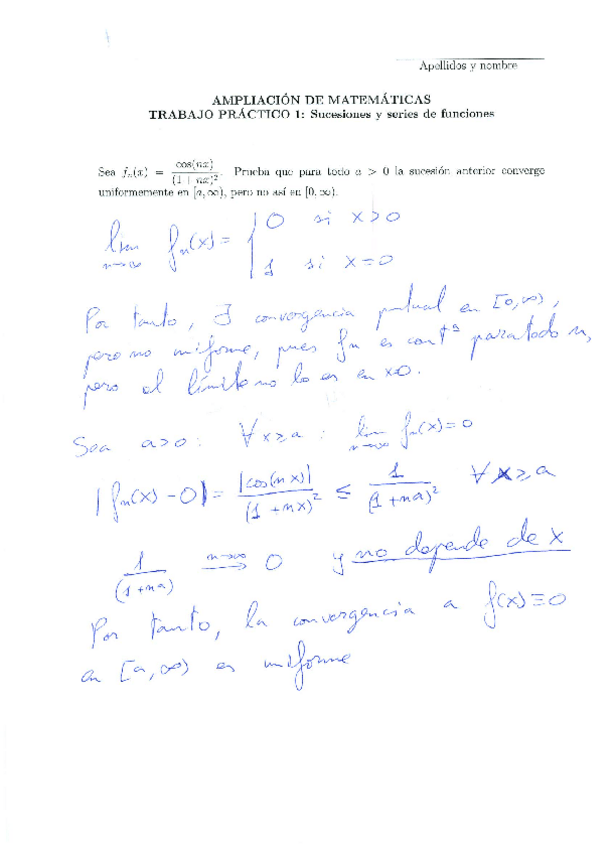 Apellidos y nombre
AMPLIACIÓN DE MATEMÁTICAS
TRABAJO PRÁCTICO 1: Sucesiones y series de funciones
Sea fₙ(x) = cos(nx)/(1 + nx)². Prueba que para todo a > 0 la sucesión anterior converge
uniformemente en [a, ∞), pero no así en [0, ∞).
lim n→∞ fₙ(x) = { 0 si x>0
1 si x=0
Por tanto, ∃ convergencia puntual en [0,∞),
pero no uniforme, pues fₙ es contª para todo n,
pero el límite no lo es en x=0.
Sea a>0: ∀x≥a: lim n→∞ fₙ(x)=0
|fₙ(x) - 0| = |cos(nx)|/(1+nx)² ≤ 1/(1+na)² ∀x≥a
1/(1+na) n→∞ → 0 y no depende de x
Por tanto, la convergencia a f(x)≡0
en [a,∞) es uniforme